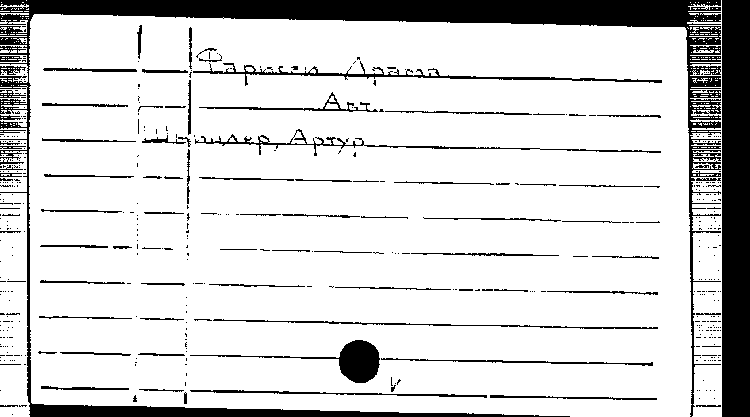 Фариссы Драма
Авт.
Шницлер, Артур
v